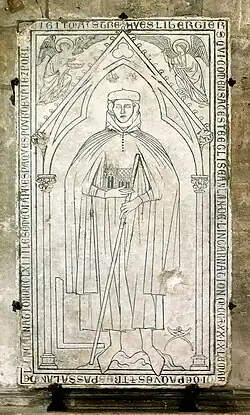 CI GIT MAISTRE HVES LIBERGIERS
QVI COMENSA CESTE EGLISE AN LAN DE LINCARNATION M CC ET XX IX LE MAR
DI DE PAQVES ET TRESPASSA LAN DE
LINCARNATION M CC LXIII LE SAMEDI APRES PAQVES POVR DEV PIEZ POR LVI